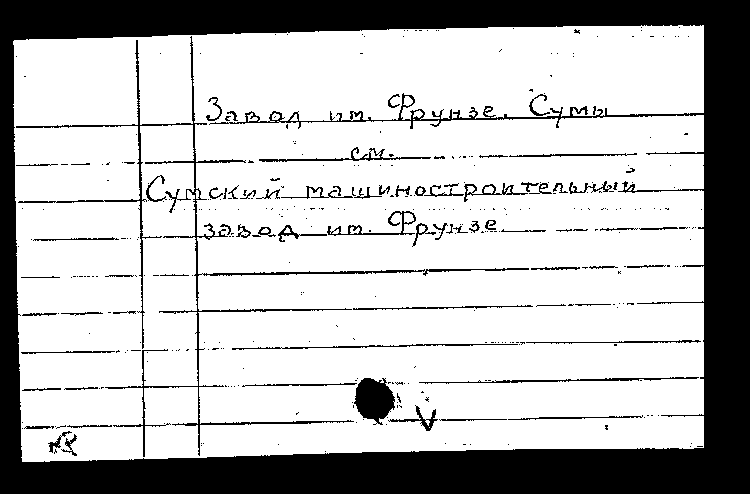 Завод им. Фрунзе. Сумы
см.
Сумский машиностроительный
завод им. Фрунзе
V